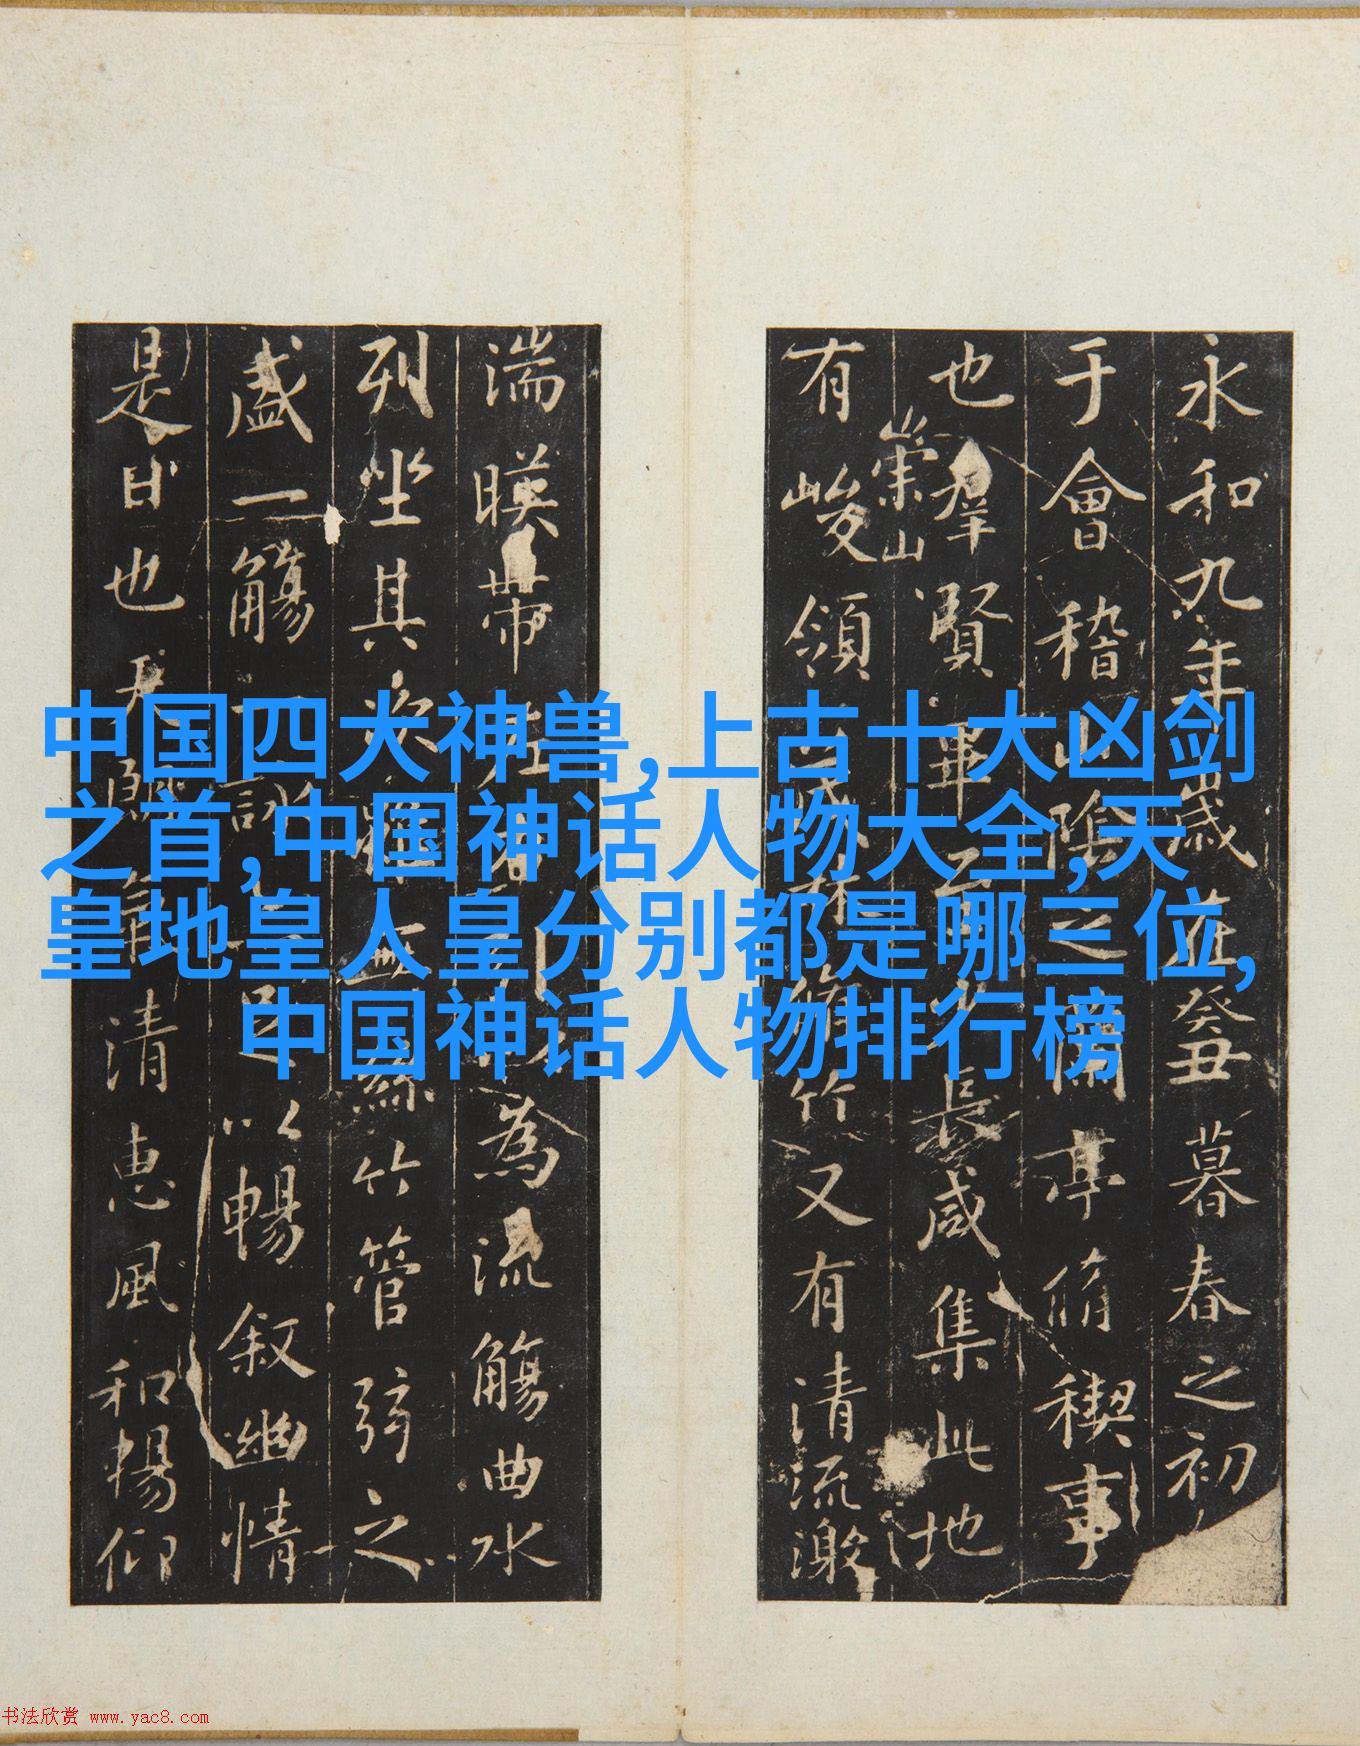 永和九年歲在癸丑暮春之初
于會稽山陰之蘭亭脩禊事
也群賢畢至少長咸集此地
崇山
有峻領茂林脩竹又有清流激
湍暎帶左右引以為流觴曲水
列坐其次雖無絲竹管弦之
盛一觴一詠亦足以暢叙幽情
是日也天朗氣清惠風和暢仰
中国四大神兽,上古十大凶剑
之首,中国神话人物大全,天
皇地皇人皇分别都是哪三位,
中国神话人物排行榜
书法欣赏 www.yac8.com